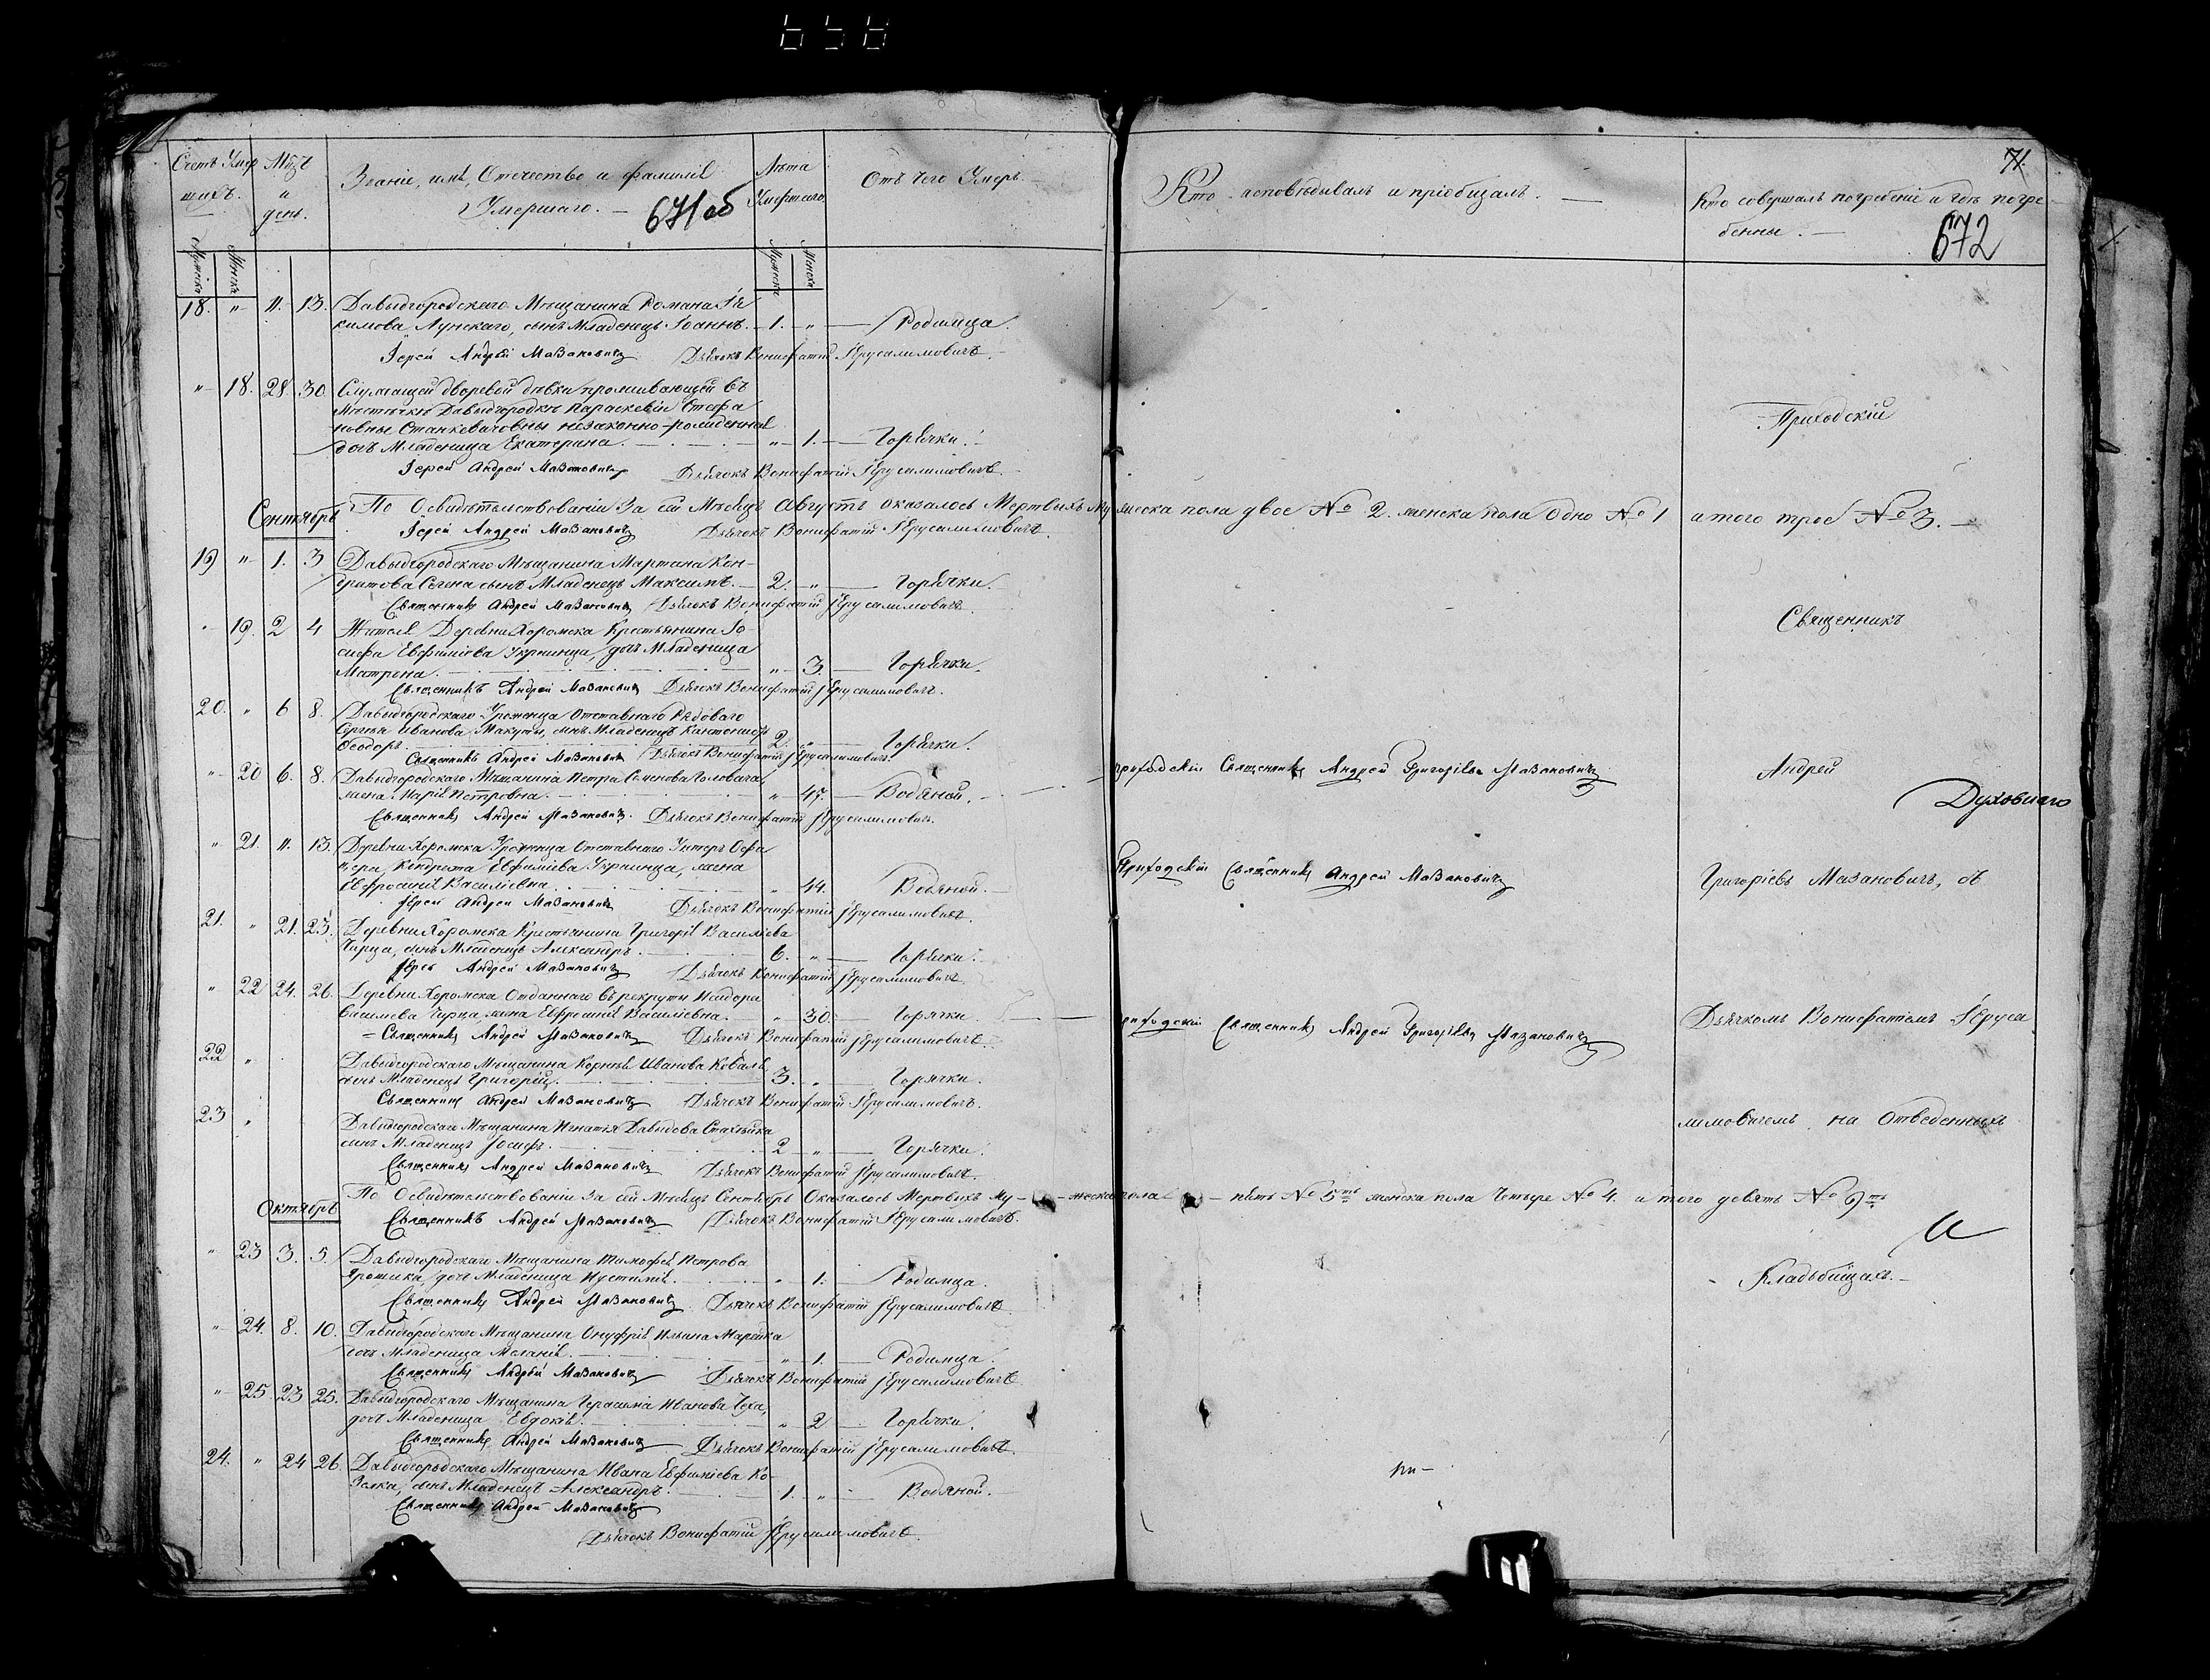 71.
Счетъ Умер
шихъ.
Мѣсц
и
день.
Званіе, имя, Отчество и фамилія
Умершаго. —
671об
Лѣта
Умершаго
Отъ чего Умеръ. —
Кто исповѣдывалъ и пріобщалъ. —
Кто совершалъ погребеніе и гдѣ погре
бенны. —
672
Мужска
Женска
Мужска
Женска
18. „ 11. 13. Давыдгородскаго Мѣщанина Романа
кимова Лунскаго, сынъ Младенецъ Іоаннъ. — 1. „ — Родимца.
Іерей Андрей Мазановичъ Дьячокъ Вонифатій Ерусалимовичъ.
„ 18. 28 30. Служащей дворовой дѣвки проживающей въ
Мѣстечкѣ Давыдгородкѣ Параскевіи Стефа
новны Станкевичовны незаконно-рожденная
дочь Младеница Екатерина. — „ 1. — Горячки.
Іерей Андрей Мазановичъ Дьячокъ Вонифатій Ерусалимовичъ.
Приходскій
По Освидѣтельствованіи За сей Мѣсяцъ Августъ оказалось Мертвыхъ му жеска пола двое № 2. женска пола Одно № 1 итого трое № 3. —
Сентябрь
Іерей Андрей Мазановичъ Дьячокъ Вонифатій Ерусалимовичъ.
19 „ 1. 3 Давыдгородскаго Мѣщанина Мартина Кон-
дратова сынъ Младенецъ Максимъ. — 2. „ — Горячки.
Священникъ Андрей Мазановичъ Дьячокъ Вонифатій Ерусалимовичъ.
Священникъ
„ 19. 2 4 Жителя Деревни Хоромска Крестьянина Іо-
сифа Евфиміева Украинца, дочь Младеница
Матрона. — „ 3. — Горячки.
Священникъ Андрей Мазановичъ Дьячокъ Вонифатій Ерусалимовичъ.
20. „ 6 8. Давыдгородскаго Уроженца Отставнаго Рядоваго
Сергѣя Иванова Макуты, сынъ Младенецъ Кантонистъ
Ѳеодоръ. — 2. „ — Горячки.
Священникъ Андрей Мазановичъ Дьячокъ Вонифатій Ерусалимовичъ.
„ 20 6. 8. Давыдгородскаго Мѣщанина Петра Семенова Головача,
жена Марія Петровна. — „ 45. — Водяной. — приходскій Священникъ Андрей Григоріевъ Мазановичъ
Андрей
Духовнаго
Священникъ Андрей Мазановичъ. Дьячокъ Вонифатій Ерусалимовичъ.
„ 21. 11. 13. Деревни Хоромска Уроженца Отставнаго Унтеръ Офи
цера, Кондрата Евфиміева Украинца, жена
Евфросинія Василіевна. — „ 44. Водяной. — Приходскій Священникъ Андрей Мазановичъ
Григоріевъ Мазановичъ, съ
Іерей Андрей Мазановичъ Дьячокъ Вонифатій Ерусалимовичъ.
21. „ 21. 23. Деревни Хоромска Крестьянина Григорія Василіева
сынъ Младенецъ Александръ. — 6. „ — Горячки.
Іерей Андрей Мазановичъ Дьячокъ Вонифатій Ерусалимовичъ.
„ 22 24. 26. Деревни Хоромска Отданнаго въ рекруты Исидора
Василіева жена Евфросинія Василіевна. — „ 30. — Горячки. — приходскій Священникъ Андрей Григоріевъ Мазановичъ
Дьячкомъ Вонифатіемъ Еруса
Священникъ Андрей Мазановичъ Дьячокъ Вонифатій Ерусалимовичъ.
22 „ Давыдгородскаго Мѣщанина Корнѣя Иванова Коваля,
сынъ Младенецъ Григорій. — 3. „ — Горячки.
Священникъ Андрей Мазановичъ Дьячокъ Вонифатій Ерусалимовичъ.
23 „ Давыдгородскаго Мѣщанина Игнатія Давыдова
сынъ Младенецъ Іосифъ. — 2 „ — Горячки.
лимовичемъ, на Отведенныхъ
Священникъ Андрей Мазановичъ Дьячокъ Вонифатій Ерусалимовичъ.
По Освидѣтельствованіи За сей Мѣсяцъ Сентябрь Оказалось Мертвыхъ му- жеска пола — пять № 5ть женска пола Четыре № 4. и того девять № 9ть
Октябрь
Священникъ Андрей Мазановичъ Дьячокъ Вонифатій Ерусалимовичъ.
„ 23 3. 5. Давыдгородскаго Мѣщанина Тимофея Петрова
дочь Младеница Иустинія. — „ 1. — Родимца.
Кладьбищахъ. —
Священникъ Андрей Мазановичъ. Дьячокъ Вонифатій Ерусалимовичъ.
„ 24. 8. 10. Давыдгородскаго Мѣщанина Онуфрія
дочь Младеница Меланія. — „ 1. — Родимца.
Священникъ Андрей Мазановичъ Дьячокъ Вонифатій Ерусалимовичъ
„ 25 23 25. Давыдгородскаго Мѣщанина Герасима Иванова
дочь Младеница Евдокія. — „ 2 — Горячки.
Священникъ Андрей Мазановичъ Дьячокъ Вонифатій Ерусалимовичъ
24. „ 24 26 Давыдгородскаго Мѣщанина Ивана Евфиміева Ко-
сынъ Младенецъ Александръ. — 1. „ — Водяной. —
Священникъ Андрей Мазановичъ
Дьячокъ Вонифатій Ерусалимовичъ.